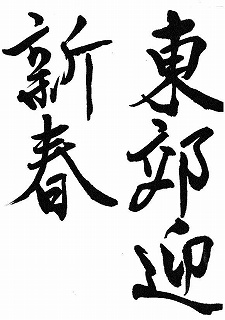 東郊迎
新春